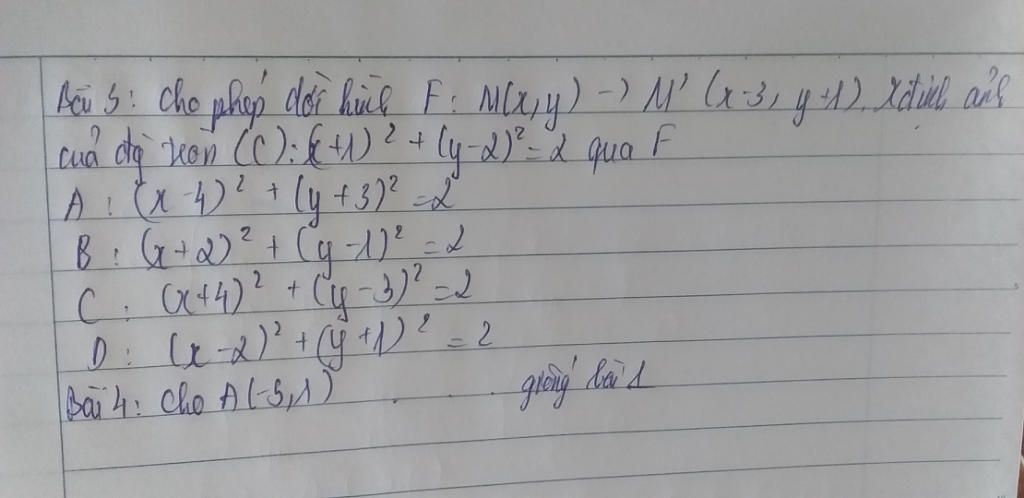 Bài 3: Cho phép dời hình F: M(x,y) -> M' (x-3, y+1). Xđịnh ảnh
của đg tròn (C): (x+1)² + (y-2)² = 2 qua F
A: (x-4)² + (y+3)² = 2
B: (x+2)² + (y-1)² = 2
C: (x+4)² + (y-3)² = 2
D: (x-2)² + (y+1)² = 2
Bài 4: Cho A(-5,1) . . . giống bài 1